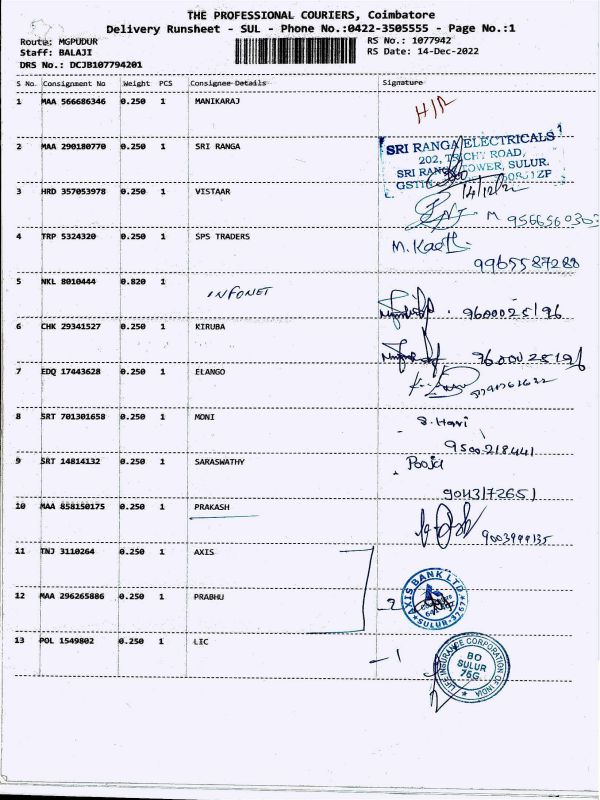 THE PROFESSIONAL COURIERS, Coimbatore
Delivery Runsheet - SUL - Phone No.:0422-3505555 - Page No.:1
Route: MGPUDUR RS No.: 1077942
Staff: BALAJI RS Date: 14-Dec-2022
DRS No.: DCJB107794201
S No. Consignment No Weight PCS Consignee Details Signature
1 MAA 566686346 0.250 1 MANIKARAJ H/R
2 MAA 290180770 0.250 1 SRI RANGA
SRI RANGA ELECTRICALS
202, TRICHY ROAD,
SRI RANGA TOWER, SULUR.
14/12/22
3 HRD 357053978 0.250 1 VISTAAR
4 TRP 5324320 0.250 1 SPS TRADERS
9965587288
5 NKL 8010444 0.820 1 INFONET 9600025196
6 CHK 29341527 0.250 1 KIRUBA 9600025196
7 EDQ 17443628 0.250 1 ELANGO
8 SRT 701301658 0.250 1 MONI S. Hari
9500218441
9 SRT 14814132 0.250 1 SARASWATHY Pooja
9043172651
10 MAA 858150175 0.250 1 PRAKASH 9003999135
11 TNJ 3110264 0.250 1 AXIS
12 MAA 296265886 0.250 1 PRABHU 2
AXIS BANK LTD
SULUR-3767
13 POL 1549802 0.250 1 LIC - 1
LIFE INSURANCE CORPORATION OF INDIA
BO
SULUR
76G